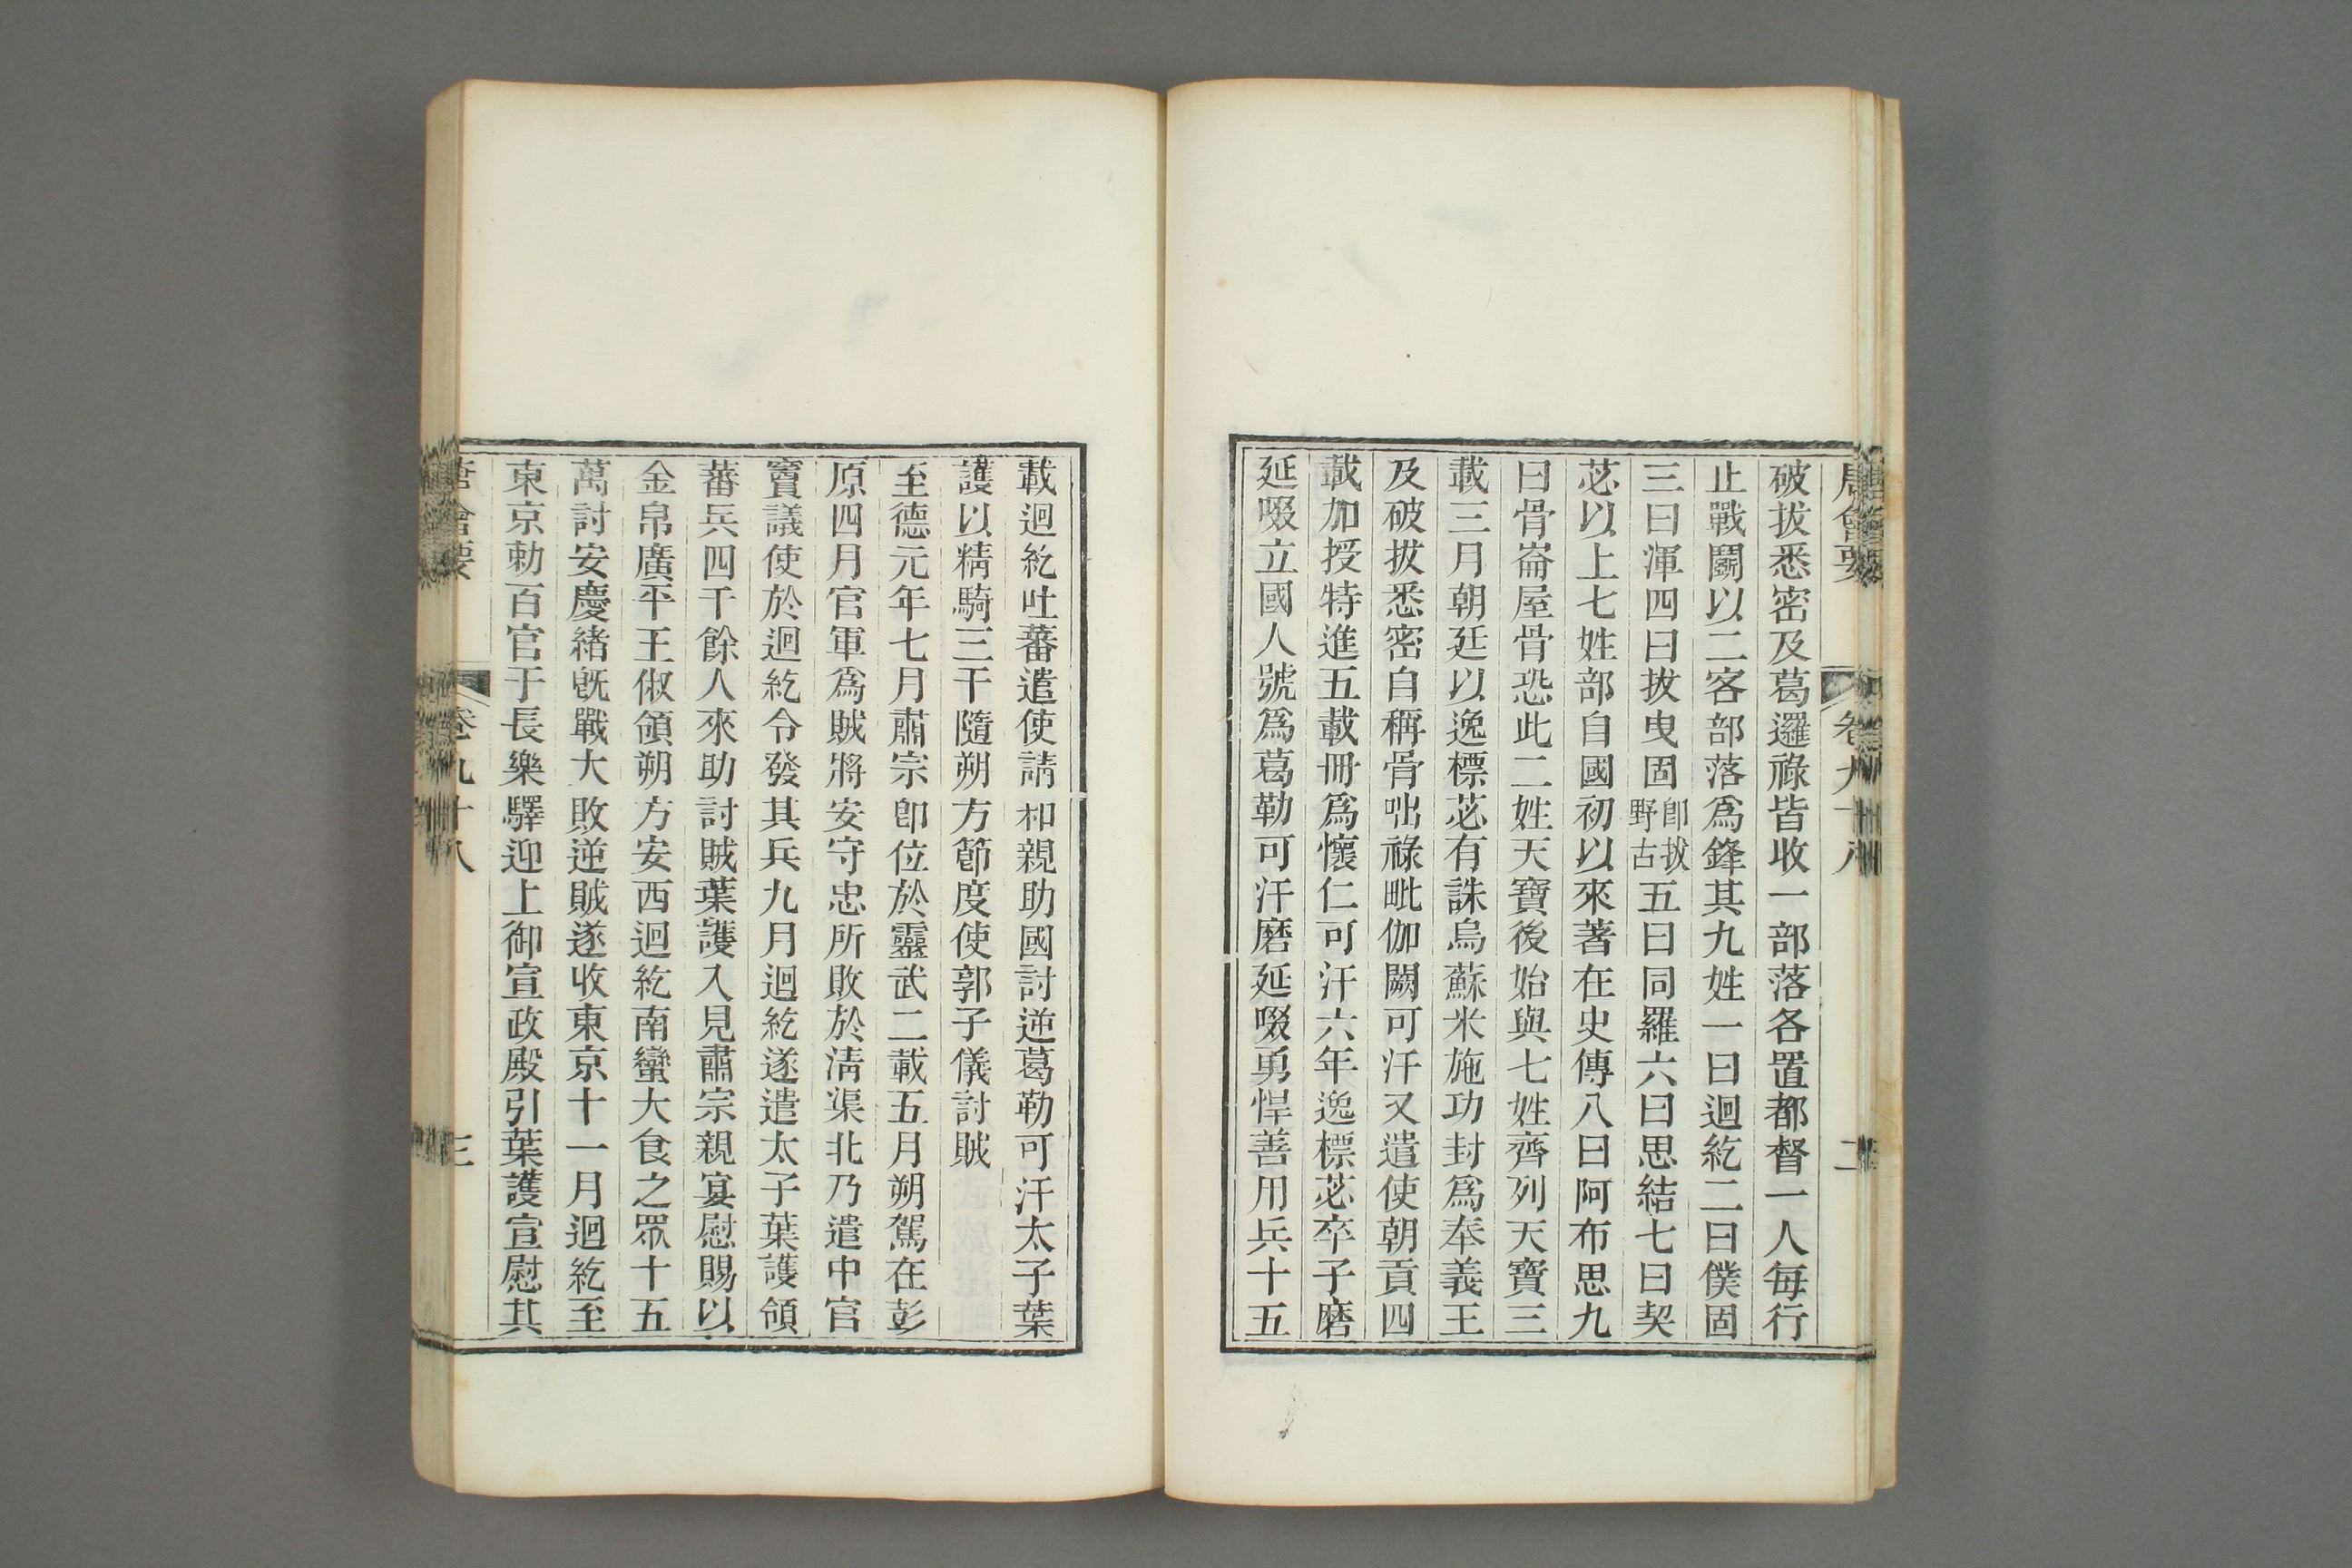 唐會要 卷九十八 二
破拔悉密及葛邏祿皆收一部落各置都督一人每行
止戰鬭以二客部落爲鋒其九姓一曰迴紇二曰僕固
三曰渾四曰拔曳固卽拔野古五曰同羅六曰思結七曰契
苾以上七姓部自國初以來著在史傳八曰阿布思九
曰骨崙屋骨恐此二姓天寶後始與七姓齊列天寶三
載三月朝廷以逸標苾有誅烏蘇米施功封爲奉義王
及破拔悉密自稱骨咄祿毗伽闕可汗又遣使朝貢四
載加授特進五載冊爲懷仁可汗六年逸標苾卒子磨
延啜立國人號爲葛勒可汗磨延啜勇悍善用兵十五
載迴紇吐蕃遣使請和親助國討逆葛勒可汗太子葉
護以精騎三千隨朔方節度使郭子儀討賊
至德元年七月肅宗卽位於靈武二載五月朔駕在彭
原四月官軍爲賊將安守忠所敗於淸渠北乃遣中官
竇議使於迴紇令發其兵九月迴紇遂遣太子葉護領
蕃兵四千餘人來助討賊葉護入見肅宗親宴慰賜以
金帛廣平王俶領朔方安西迴紇南蠻大食之眾十五
萬討安慶緒旣戰大敗逆賊遂收東京十一月迴紇至
東京勅百官于長樂驛迎上御宣政殿引葉護宣慰其
唐會要 卷九十八 三